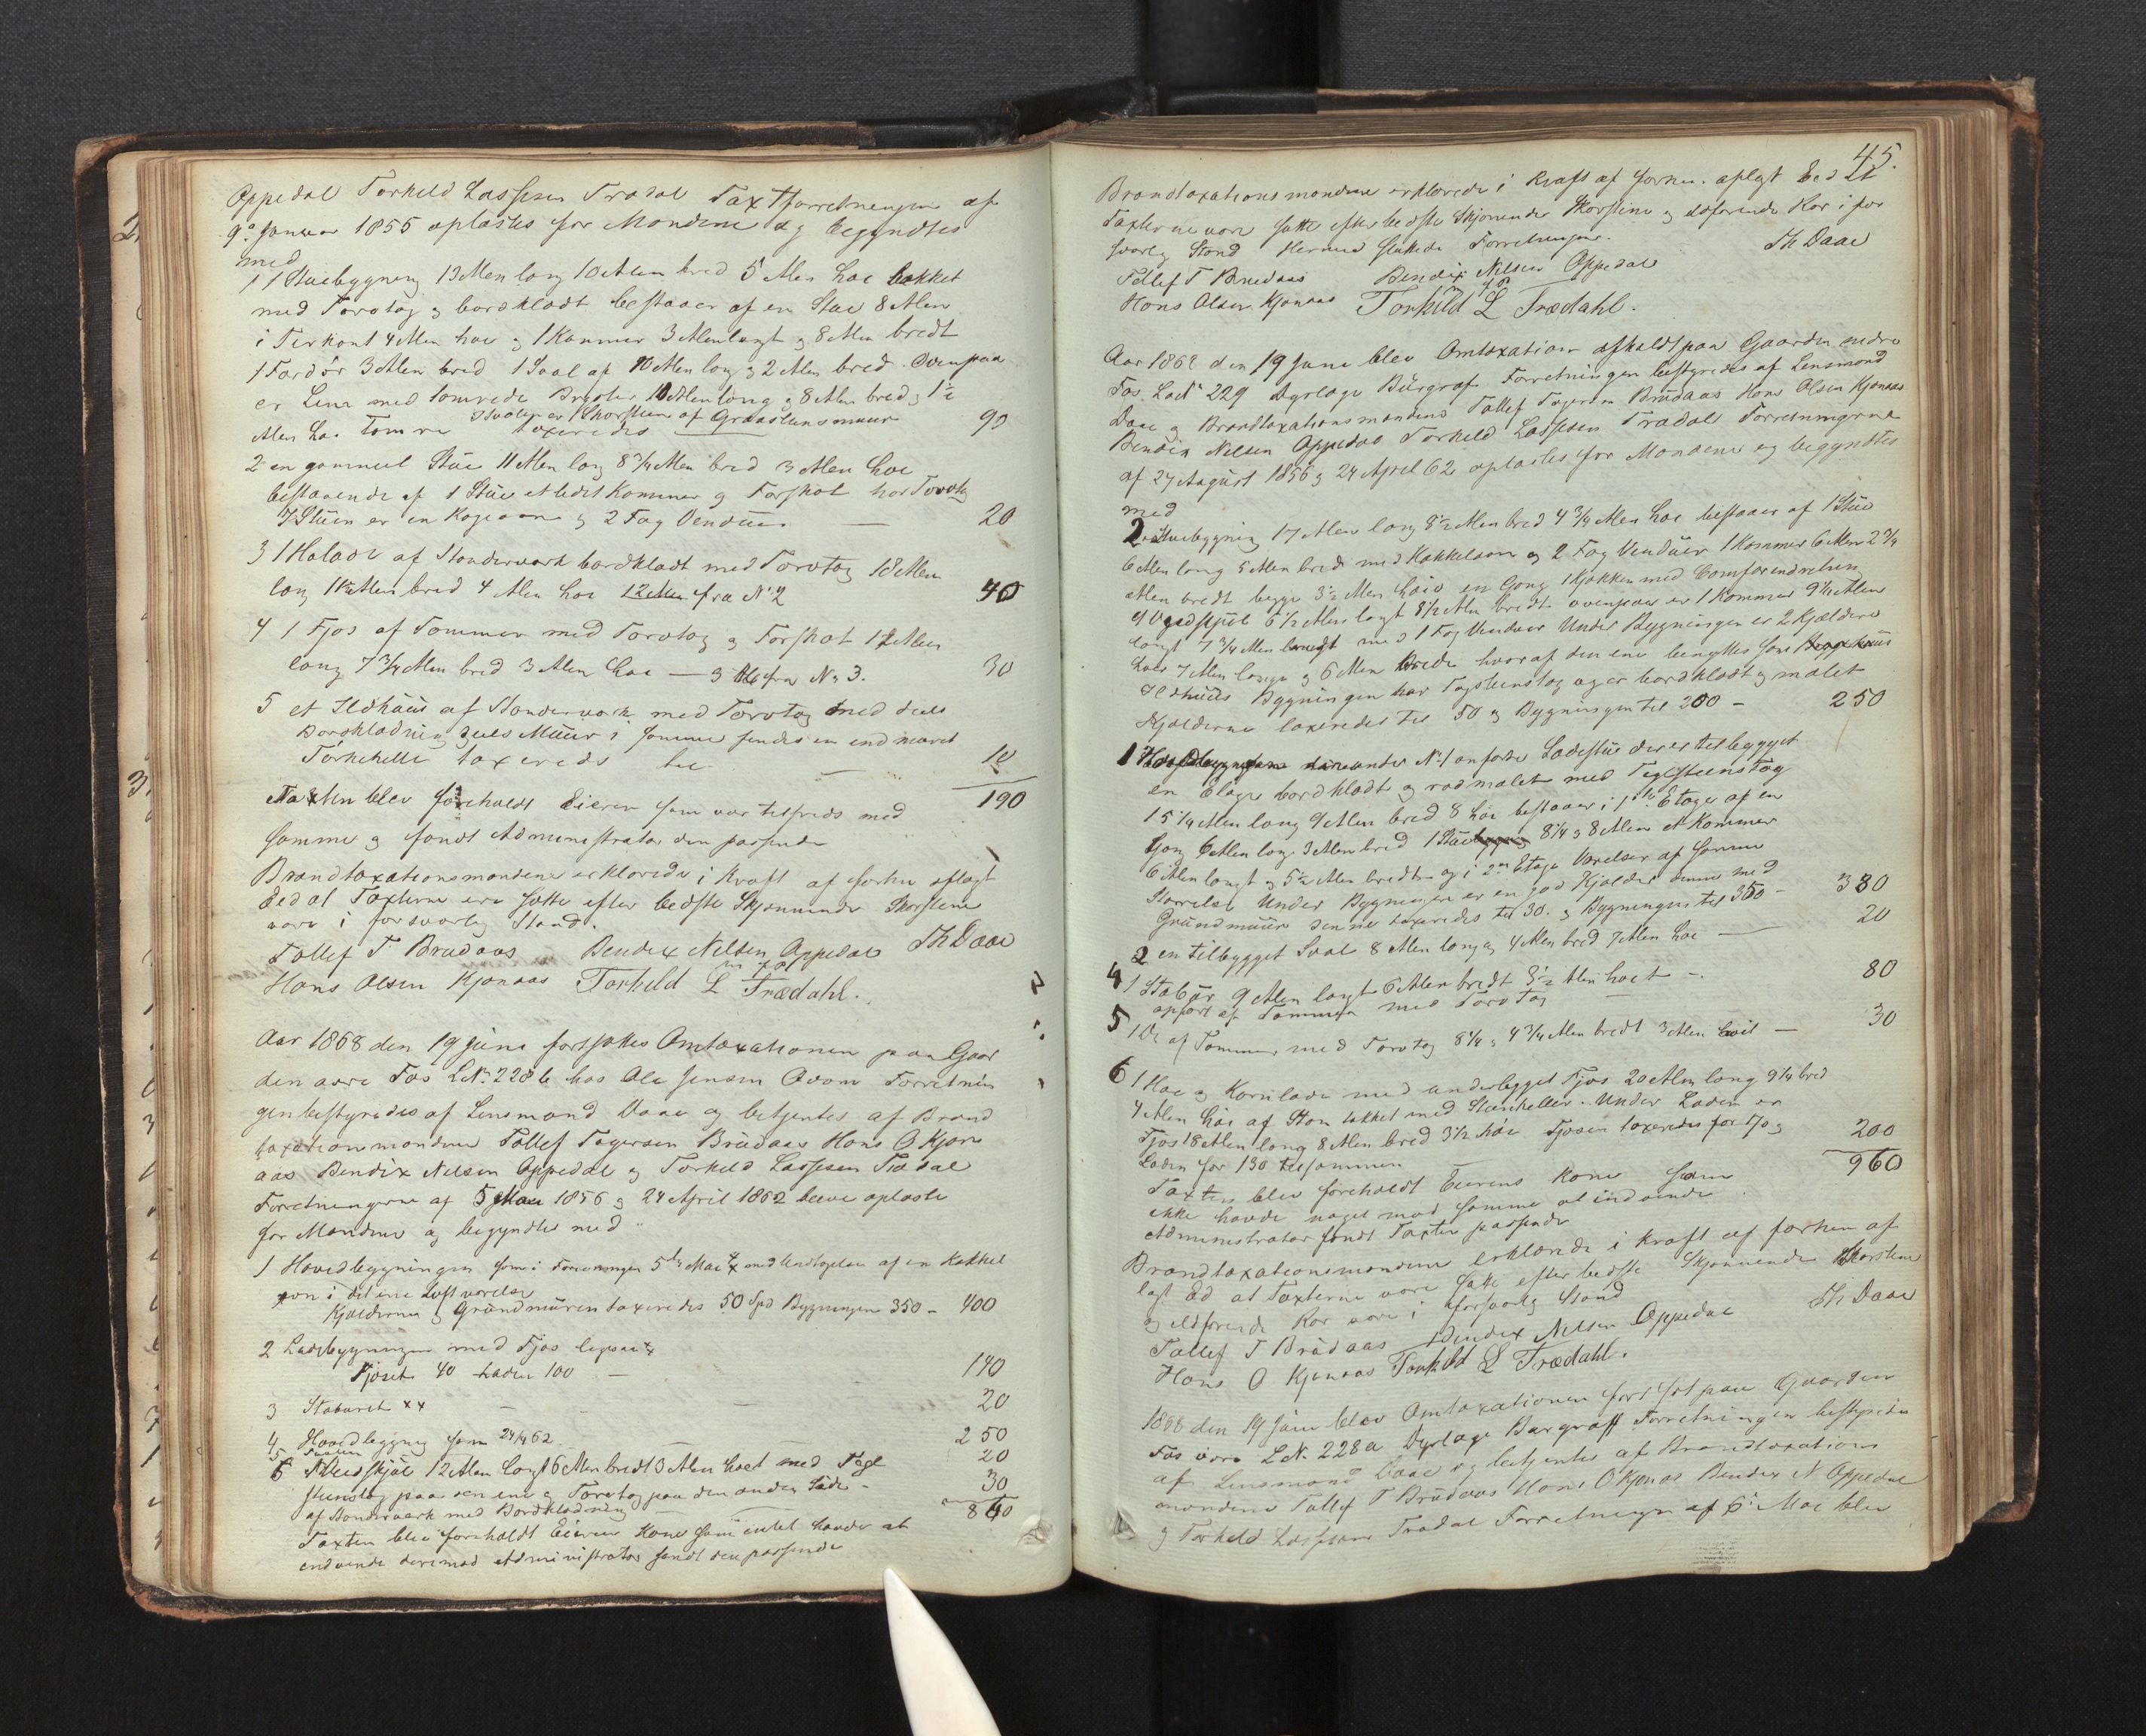 Oppedal Torkeld Lassesen Trædal Taxtforretningen af
9de Januar 1855 oplæstes for Mændene og begyndtes
med
1 1 Stuebygning 13 Alen lang 10 Alen bred 5 Alen høi tækket
med Torvtag og bordklædt bestaaer af en Stue 8 Alen
i Firkant 4 Alen høi og 1 Kammer 3 Alen langt og 8 Alen bredt
1 Fordør 3 Alen bred 1 Sval af 10 Alen lang og 2 Alen bred Ovenpaa
er Lem med tømrede 10 Alen lang og 8 Alen bred og 1½
Alen høi Tømre Stuen er 1 Skorsteen af Graasteensmuur
taxeredes 90
2 en gammel Stue 11 Alen lang 8¾ Alen bred 3 Alen høi
bestaaende af 1 Stue et lidet Kammer og Forskot har Torvtag
I Stuen er en Kogeovn og 2 Fag Venduer — 20
3 1 Høladе af Stenderværk bordklædt med Torvtag 18 Alen
lang Alen bred 4 Alen høi 12 Alen fra No 2 40
4 1 Fjøs af Tømmer med Torvtag og Forskot 12 Alen
lang 7¾ Alen bred 3 Alen høi — 3 Al fra No 3. 30
5 et Ildhuus af Stenderværk med Torvtag med deels
Bordklædning deels Muur i samme findes en indmuret
Tørkehelle taxeredes til — 10
190
Taxten blev foreholdt Eieren som var tilfreds med
samme og fandt Administrator den passende
Brandtaxationsmændene erklærede i Kraft af forhen aflagt
Eed at Taxterne ere satte efter bedste Skjønnende Skorstene
vare i forsvarlig Stand.
Th Daae
Tollef T. Brudaas Bendix Nelsen Oppedal
Hans Olsen Kjønaas Torkeld L Trædahl.
Aar 1868 den 19 Juni fortsattes Omtaxationen paa Gaar
den øvre Fos LNo 228 b hos Ole Jensen Forretnin
gen bestyredes af Lensmand Daae og betjentes af Brand
taxationsmændene Tollef Togersen Brudaas Hans O Kjøn
aas Bendix Nelsen Oppedal og Torkeld Lassesen Trædal
Forretningerne af 5 Mai 1856 og 24 April 1862 bleve oplæste
for Mændene og begyndtes med
1 Hovedbygningen som i Forretningen 5te Mai med Undtagelse af en Kakkel
ovn i det ene Loftværelse
Kjælderne og Grundmuren taxeredes 50 Spd Bygningen 350 – 400
2 Ladebygningen med Fjøs
Fjøset 40 Laden 100 — 140
3 Staburet xx — 20
4 Hovedbygning som 24/4 62 — 250
20
5 Vedskjul 12 Alen langt 6 Alen bredt 3 Alen høit med Tegl
steenstag paa den ene og Torvtag paa den anden Side – 30
af Stenderværk med Bordklædning
860
Taxten blev foreholdt Eierens Kone som intet havde at
indvende derimod Administrator fandt den passende
45.
Brandtaxationsmændene erklærede i Kraft af forhen aflagt Eed at
Taxterne vare satte efter bedste Skjønnende Skorstene og ildførende Rør i for
svarlig Stand Hermed sluttedes Forretningen.
Th Daae
Tollef T Brudaas Bendix Nelsen Oppedal
Hans Olsen Kjønaas Torkeld L Trædahl.
Aar 1868 den 19 Juni blev Omtaxation afholdt paa Gaarden nedre
Fos, LNo 229 Dyrlæge Burgraf. Forretningen bestyredes af Lensmand
Daae og Brandtaxationsmændene Tollef Togersen Brudaas Hans Olsen Kjønaas
Bendix Nelsen Oppedal Torkeld Lassesen Trædal Forretningerne
af 27 August 1856 og 24 April 62 oplæstes for Mændene og begyndtes
med
2 Stuebygning 17 Alen lang 8½ Alen bred 4¾ Alen høi bestaaer af 1 Stue
6 Alen lang 5 Alen bred med Kakkelovn og 2 Fag Venduer 1 Kammer 6 Alen 2¾
Alen bredt begge 3½ Alen høie en Gang 1 Kjøkken med Comfurindretning
og Vedskjul 6½ Alen langt 8½ Alen bredt ovenpaa er 1 Kammer 9½ Alen
langt 7¾ Alen bredt med 1 Fag Venduer Under Bygningen er 2 Kjældere
hver 7 Alen lange og 6 Alen brede hvoraf den ene benyttes som
Ildhuus Bygningen har Tagsteenstag og er bordklædt og malet
Kjælderne taxeredes til 50 og Bygningen til 200 – 250
1 under No 1 anførte Ladestue der er tilbygget
en Etage bordklædt og rødmalet med Teglsteenstag
15¼ Alen lang 9 Alen bred 8 høi bestaaer i 1ste Etage af en
Gang 6 Alen lang 3 Alen bred 1 Stue 8¼ og 8 Alen et Kammer
6 Alen langt og 5½ Alen bredt og i 2den Etage Værelser af samme
Størrelse Under Bygningen er en god Kjælder denne med
Grundmuur denne taxeredes til 30. og Bygningen til 350 – 380
2 en tilbygget Sval 8 Alen lang 4 Alen bred 7 Alen høi — 20
4 1 Stabur 9 Alen langt 6 Alen bredt 3½ Alen høit –. 80
opført af Tømmer med Torvtag
5 1 Do af Tømmer med Torvtag 8¼ og 4¾ Alen bredt 3 Alen høit — 30
6 1 Høe og Kornlade med underbygget Fjøs 20 Alen lang 9¼ bred
4 Alen høi af Sten tækket med Steenheller. Under Laden er
Fjøs 18 Alen lang 8 Alen bred 3½ høi Fjøset taxeredes for 70 og
Laden for 130 tilsammen 200
960
Taxten blev foreholdt Eierens Kone som
ikke havde noget mod samme at indvende
Administrator fandt Taxten passende
Brandtaxationsmændene erklærede i Kraft af forhen af
lagt Ed at Taxterne vare satte efter bedste Skjønnende Skorstene
og ildførende Rør vare i forsvarlig Stand
Th Daae
Tollef T Brudaas Bendix Nelsen Oppedal
Hans O Kjønaas Torkeld L Trædahl.
1868 den 19 Juni blev Omtaxationen fortsat paa Gaarden
Fos øvre LNo. 228a Dyrlæge Burgraff Forretningen bestyredes
af Lensmand Daae og betjentes af Brandtaxations
mændene Tollef T Brudaas Hans O Kjønas Bendix N Oppedal
og Torkeld Lassesen Trædal Forretningen af 6te Mai blev